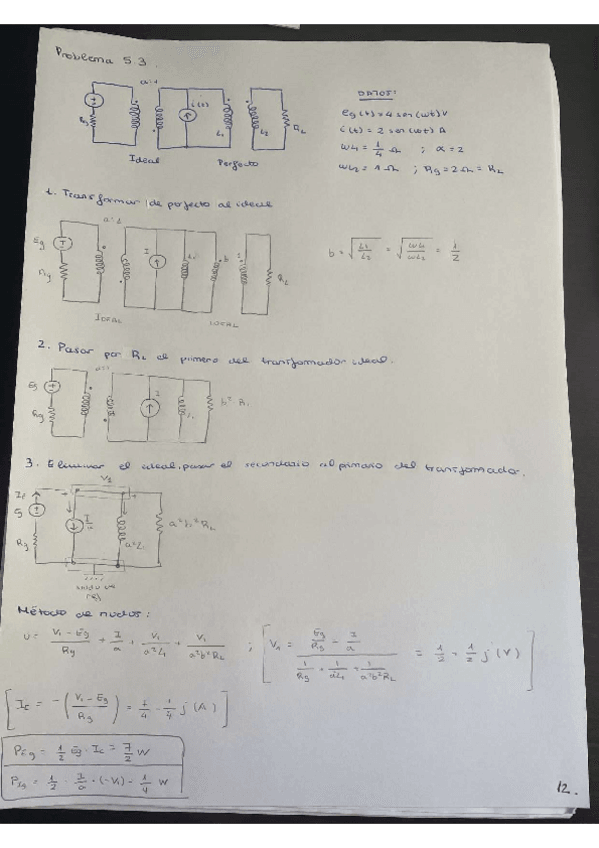 Problema 5.3.
a:1
i(t)
Rg
L1
L2
RL
Ideal
Perfecto
DATOS:
eg(t)=4 sen(wt)V
i(t)= 2 sen(wt) A
wL1 = 1/4 Ω ; a=2
wL2 = 1Ω ; Rg=2Ω = RL
1. Transformar de perfecto al ideal
a:1
Eg
Rg
I
L1
RL
IDEAL
IDEAL
b = √(L1/L2) = √(wL1/wL2) = 1/2
2. Pasar por RL al primero del transformador ideal.
a:1
Eg
Rg
I
L1
b²·RL
3. Eliminar el ideal, pasar el secundario al primario del transformador.
V1
Eg
Rg
I/a
a²L1
a²b²RL
Método de nudos:
0 = (V1 - Eg)/Rg + I/a + V1/a²L1 + V1/a²b²RL ; [ V1 = (Eg/Rg - I/a)/(1/Rg + 1/a²L1 + 1/a²b²RL) = 1/2 + 1/2 j (V) ]
[ Ic = -((V1 - Eg)/Rg) = 7/4 - 1/4 j (A) ]
PEg = 1/2 Eg · Ic = 7/2 W
PIg = 1/2 · I/a · (-V1) = 1/4 W
12.